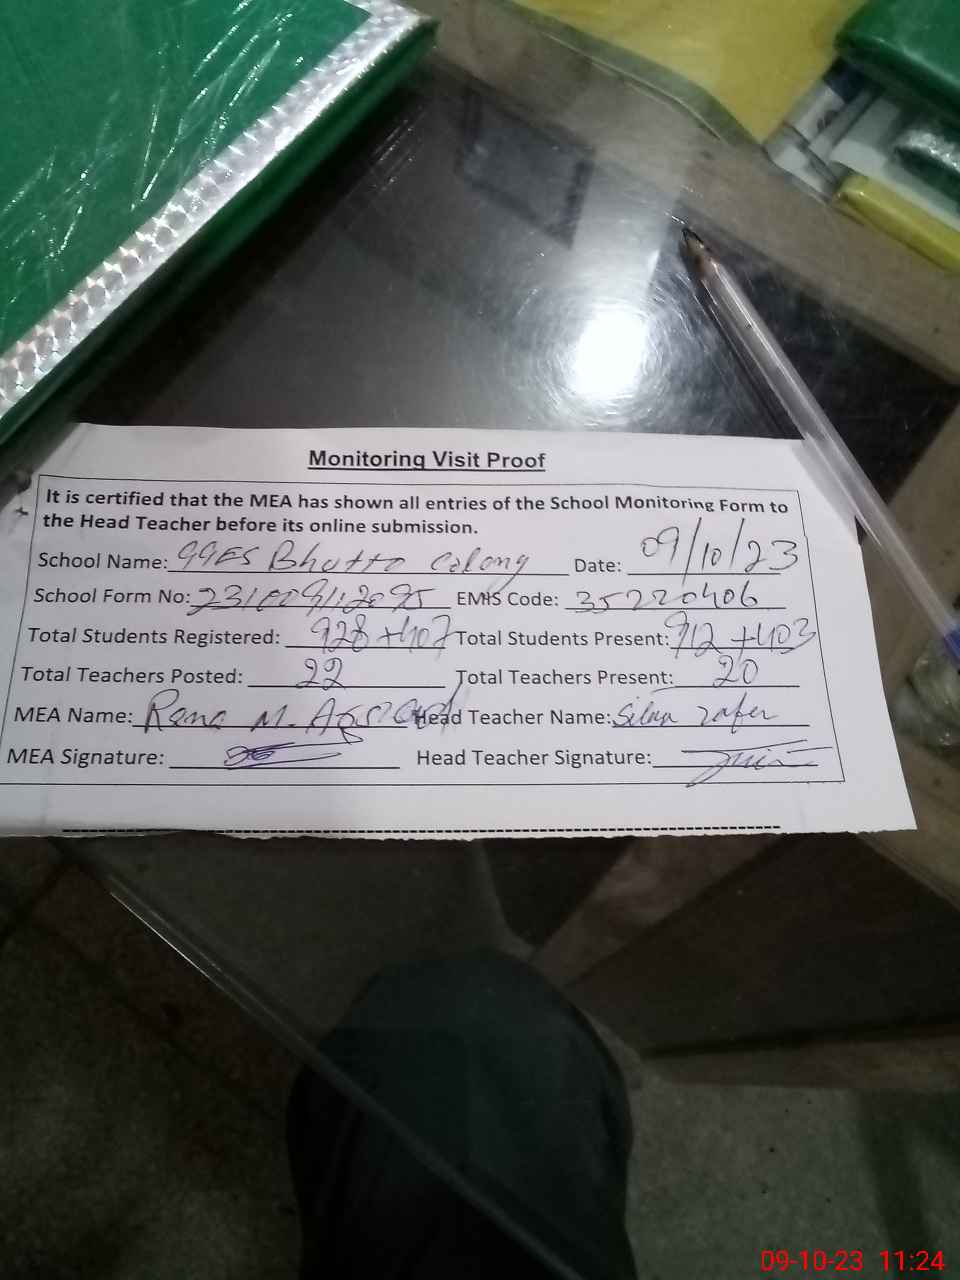 Monitoring Visit Proof
It is certified that the MEA has shown all entries of the School Monitoring Form to
the Head Teacher before its online submission.
School Name: GGES Bhutto Colony Date: 09/10/23
School Form No: EMIS Code: 35220406
Total Students Registered: 928+407 Total Students Present: 912+403
Total Teachers Posted: 22 Total Teachers Present: 20
MEA Name: Rana M. Head Teacher Name: Zafer
MEA Signature: Head Teacher Signature:
09-10-23 11:24